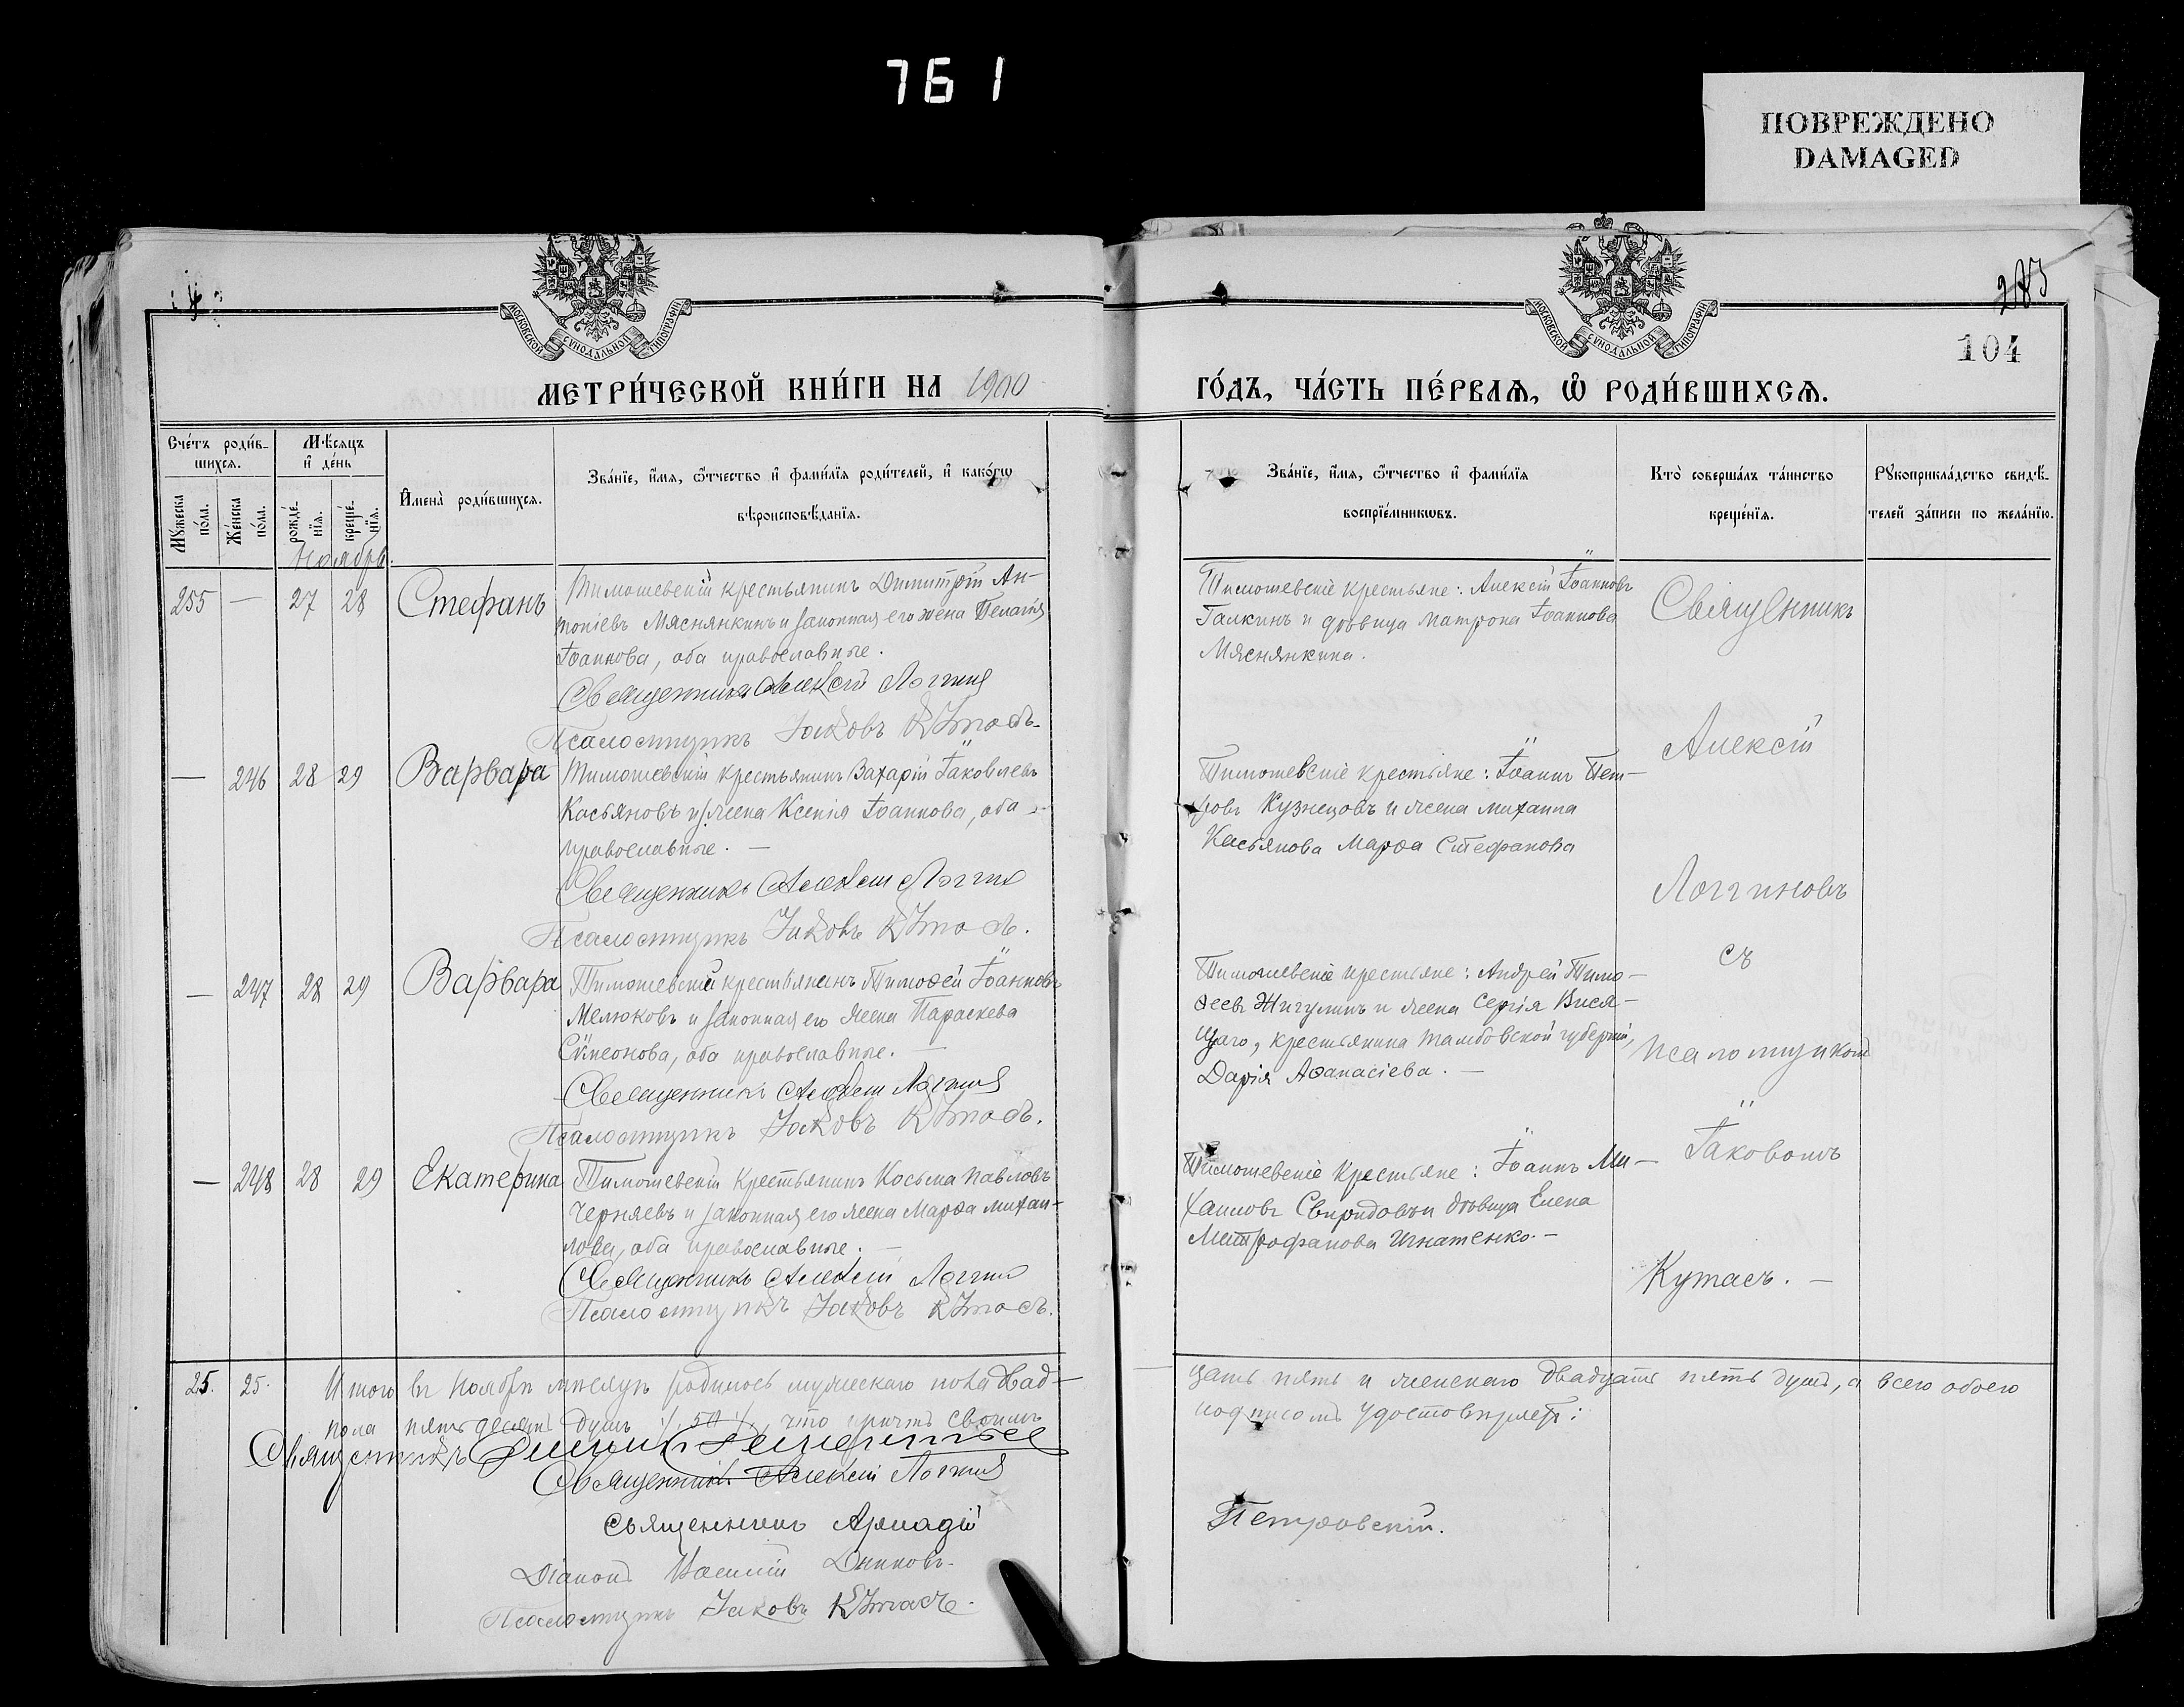 761
ПОВРЕЖДЕНО
DAMAGED
МОСКОВСКОЙ СУНОДАЛЬНОЙ ТИПОГРАФІИ
МОСКОВСКОЙ СУНОДАЛЬНОЙ ТИПОГРАФІИ
104
МЕТРИ́ЧЕСКОЙ КНИ́ГИ НА 1900
ГО́ДЪ, ЧА́СТЬ ПЕ́РВАѦ, Ѡ҆ РОДИ́ВШИХСѦ.
Сче́тъ роди́в-
шихсѧ.
Мѣ́сѧцъ
и҆ де́нь
И҆мена̀ роди́вшихсѧ.
Зва́нїе, и҆́мѧ, ѻ҆́тчество и҆ фами́лїѧ роди́телей, и҆ како́гѡ
вѣроисповѣ́данїѧ.
Мꙋ́жеска
по́ла.
Же́нска
по́ла.
рожде́-
нїѧ.
креще́-
нїѧ.
Зва́нїе, и҆́мѧ, ѻ҆́тчество и҆ фами́лїѧ
воспрїе́мникѡвъ.
Кто̀ соверша́лъ та́инство
креще́нїѧ.
Рꙋкоприкла́дство свидѣ́-
телей за́писи по жела́нїю.
Ноябрь.
255 — 27 28 Стефанъ
Тимошевскій крестьянинъ Димитрій Ан-
тоніевъ Мяснянкинъ и законная его жена Пелагія
Іоаннова, оба православные.
Священникъ Алексій Логгин
Псаломщикъ Іаковъ Кутасъ.
Тимошевскіе крестьяне: Алексій Іоанновъ
Галкинъ и дѣвица Матрона Іоаннова
Мяснянкина.
— 246 28 29 Варвара
Тимошевскій крестьянинъ Захарій Іаковлевъ
Касьяновъ и жена Ксенія Іоаннова, оба
православные. —
Священникъ Алексій Логгин
Псаломщикъ Іаковъ Кутасъ.
Тимошевскіе крестьяне: Іоаннъ Пет-
ровъ Кузнецовъ и жена Михаила
Касьянова Марѳа Стефанова
— 247 28 29 Варвара
Тимошевскій крестьянинъ Тимоѳей Іоанновъ
Мелюковъ и законная его жена Параскева
Сѵмеонова, оба православные. —
Священникъ Алексій Логгин
Псаломщикъ Іаковъ Кутасъ.
Тимошевскіе крестьяне: Андрей Тимо-
ѳеевъ Жигулинъ и жена Сергія Вися-
щаго, крестьянина Тамбовской губерніи,
Дарія Аѳанасіева. —
— 248 28 29 Екатерина
Тимошевскій крестьянинъ Косьма Павловъ
Черняевъ и законная его жена Марѳа Михаи-
лова, оба православные. —
Священникъ Алексій Логгин
Псаломщикъ Іаковъ Кутасъ.
Тимошевскіе крестьяне: Іоаннъ Ми-
хаиловъ Свиридовъ и дѣвица Елена
Митрофанова Игнатенко. —
Священникъ
Алексій
Логгиновъ
съ
псаломщикомъ
Іаковомъ
Кутасъ. —
25. 25. Итого въ Ноябрѣ мѣсяцѣ родилось мужескаго пола двад-
цать пять и женскаго двадцать пять душъ, а всего обоего
пола пятьдесятъ душъ ./. 50 ./. , что причтъ своимъ
подписомъ удостовѣряетъ:
Священникъ
Священникъ Алексій Логгин
Священникъ Аркадій
Петровскій.
Діаконъ Василій
Псаломщикъ Іаковъ Кутасъ.